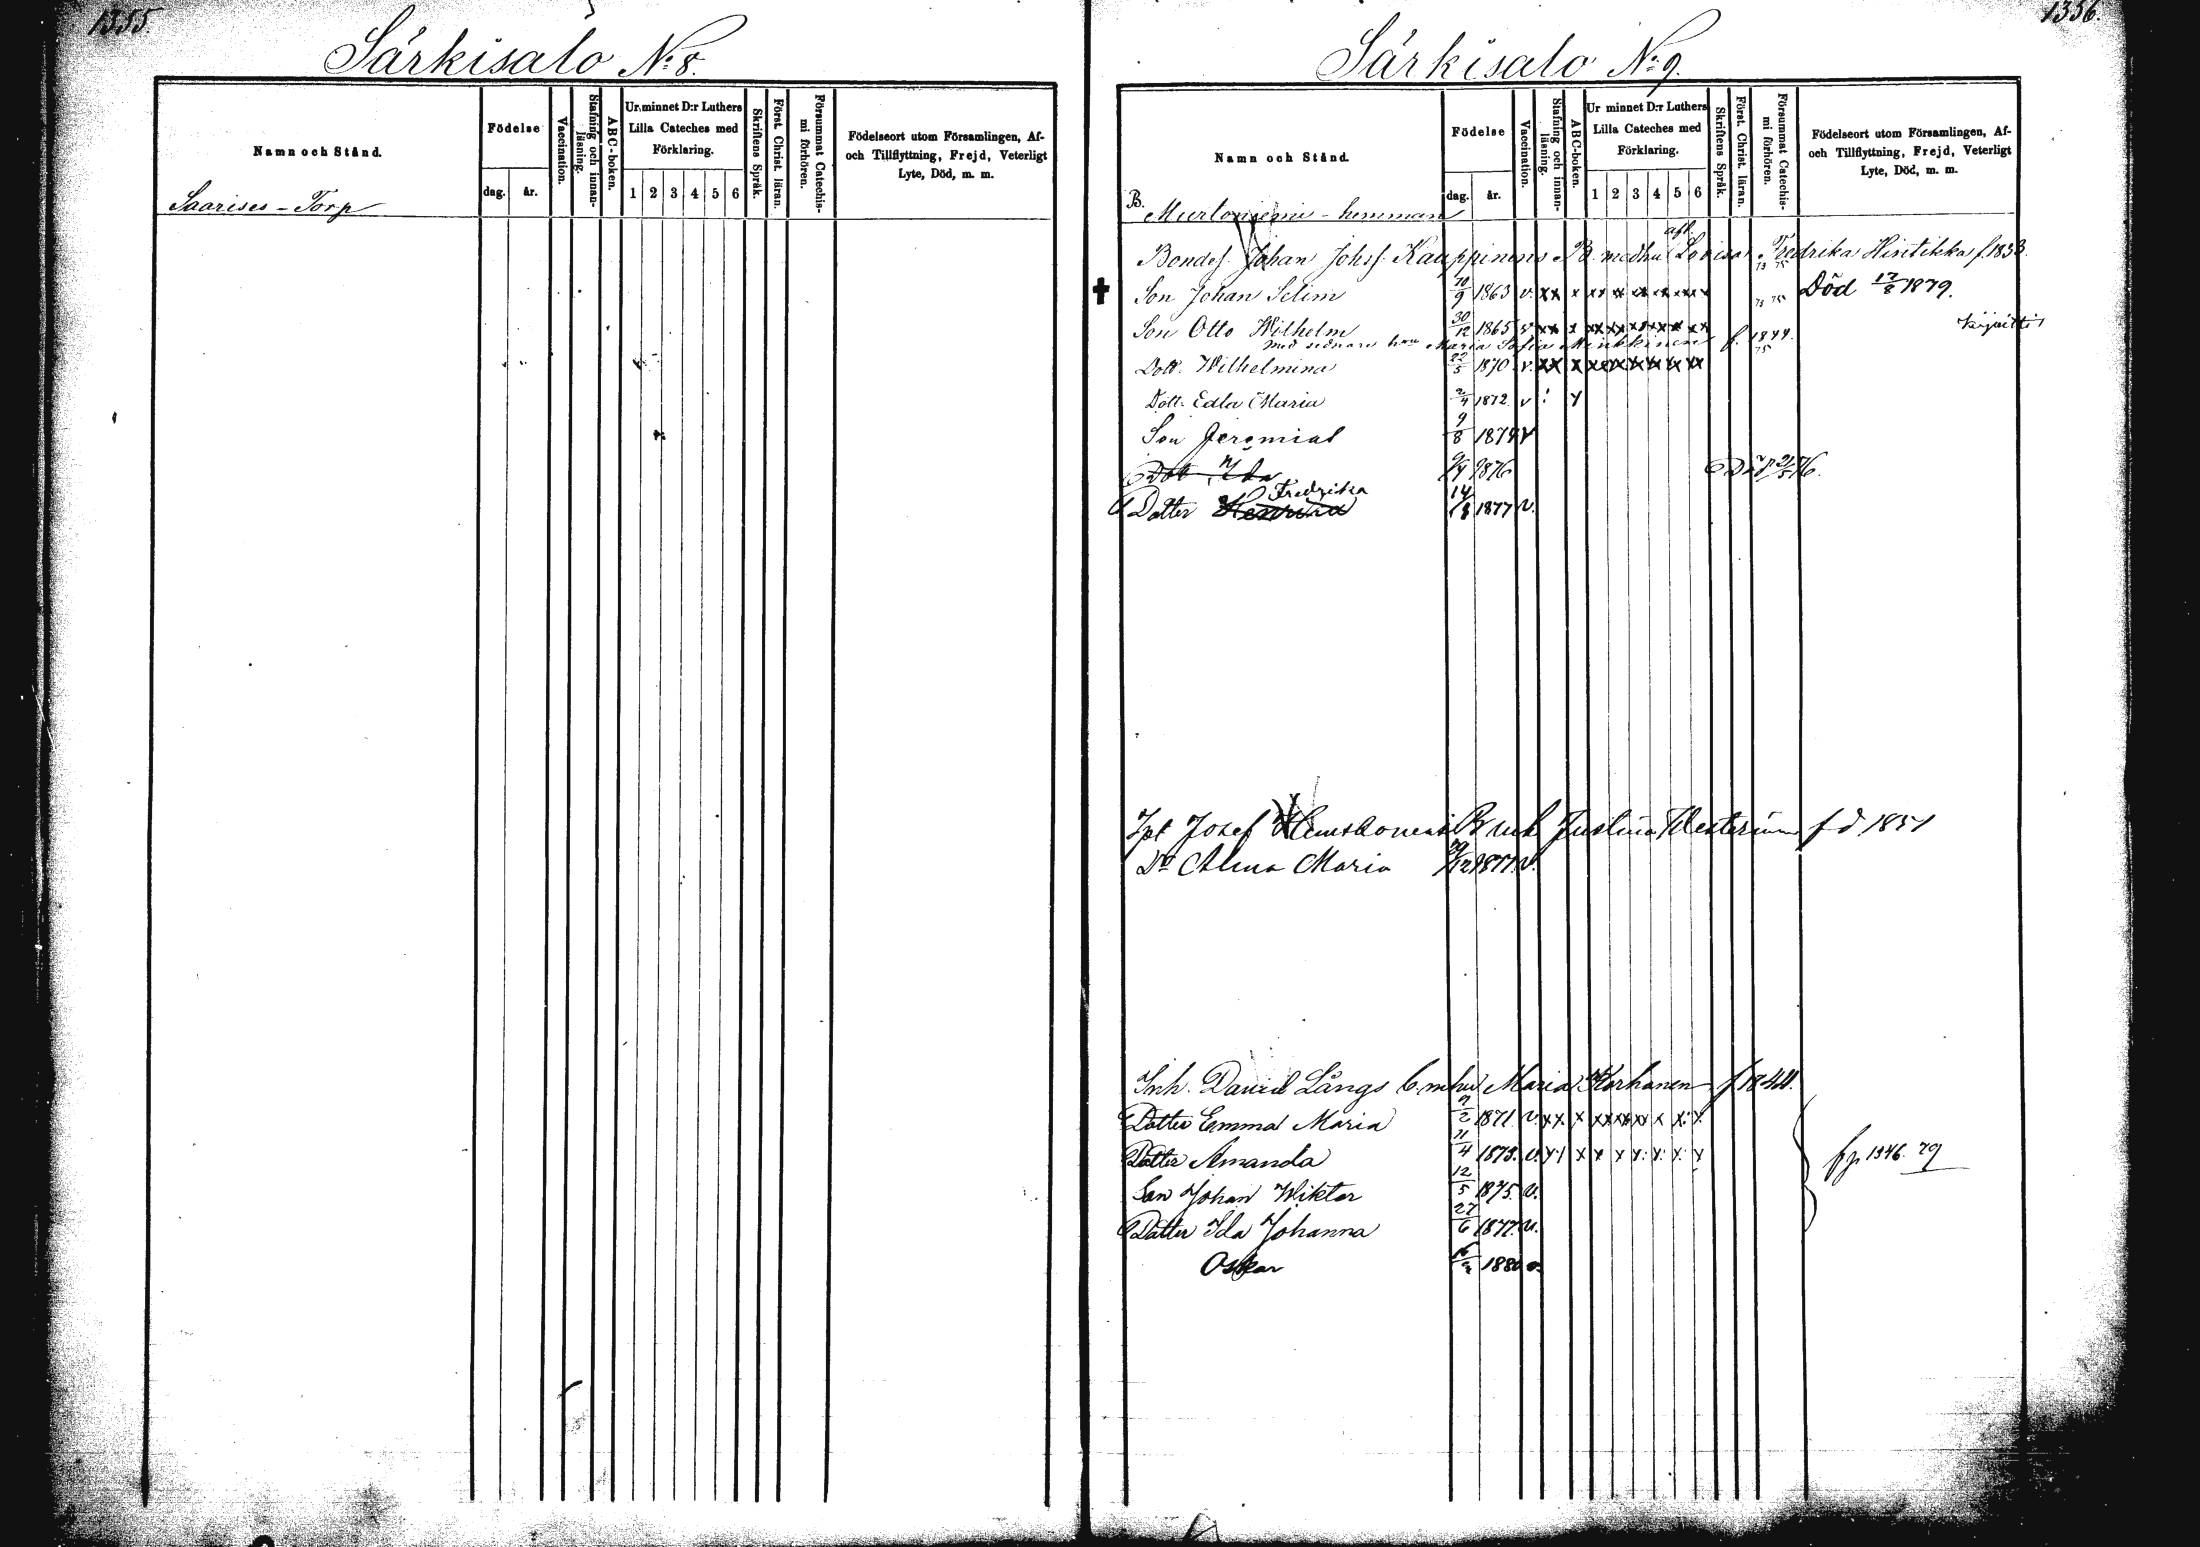 1355.
Särkisalo No 8.
Namn och Stånd.
Födelse
dag.
år.
Vaccination.
Stafning och innan-
läsning.
ABC-boken.
Ur minnet D:r Luthers
Lilla Cateches med
Förklaring.
1 2 3 4 5 6
Skriftens Språk.
Först. Christ. läran.
Försummat Catechis-
mi förhören.
Födelseort utom Församlingen, Af-
och Tillflyttning, Frejd, Veterligt
Lyte, Död, m. m.
Saarises - Torp
1356.
Särkisalo No 9.
Namn och Stånd.
Födelse
dag.
år.
Vaccination.
Stafning och innan-
läsning.
ABC-boken.
Ur minnet D:r Luthers
Lilla Cateches med
Förklaring.
1 2 3 4 5 6
Skriftens Språk.
Först. Christ. läran.
Försummat Catechis-
mi förhören.
Födelseort utom Församlingen, Af-
och Tillflyttning, Frejd, Veterligt
Lyte, Död, m. m.
B. Murtoniemi - hemman
afl.
Bondes. Johan Johss. Kauppinens B. medhu Lovisa Fredrika Hintikka f. 1833.
Son Johan Selim 10/9 1863 v. xx x xx xx xx xx xx xx 73 75 Död 17/8 1879.
Son Otto Wilhelm 30/12 1865 v xx x xx xx xx xx xx xx
med sednare hru Maria Sofia Minkkinen f. 1844.
Dott. Wilhelmina 22/5 1870 v. xx x xx xx xx xx xx xx 75
Dott. Edla Maria 2/4 1872 v
Son Jeremias 9/8 1874 v
Dott. Ida 9/4 1876 Död 21/5 76.
Fredrika
Dotter 14/8 1877 v.
Josef B. mh Justina f.d. 1851
Dr Alma Maria 29/12 1877 v.
Inh. David Långs b. mhu Maria Korhonen f 1844.
Dotter Emma Maria 9/2 1871 v. xx x xx xx xx x x: x
Dotter Amanda 11/4 1873. v. x x x x x: x: x: x
fp 1346. 79
Son Johan Wiktor 12/5 1875. v.
Dotter Ida Johanna 27/6 1877. v.
Oskar 1880 v.